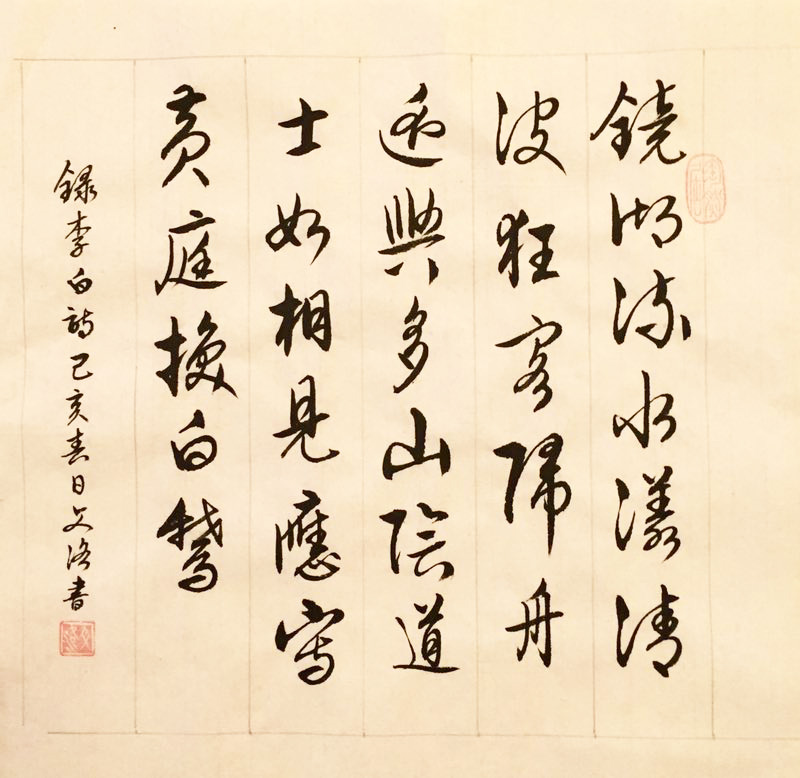 鏡湖流水漾清
波狂客歸舟
逸興多山陰道
士如相見應寫
黃庭換白鵝
録李白詩己亥春日文洛書